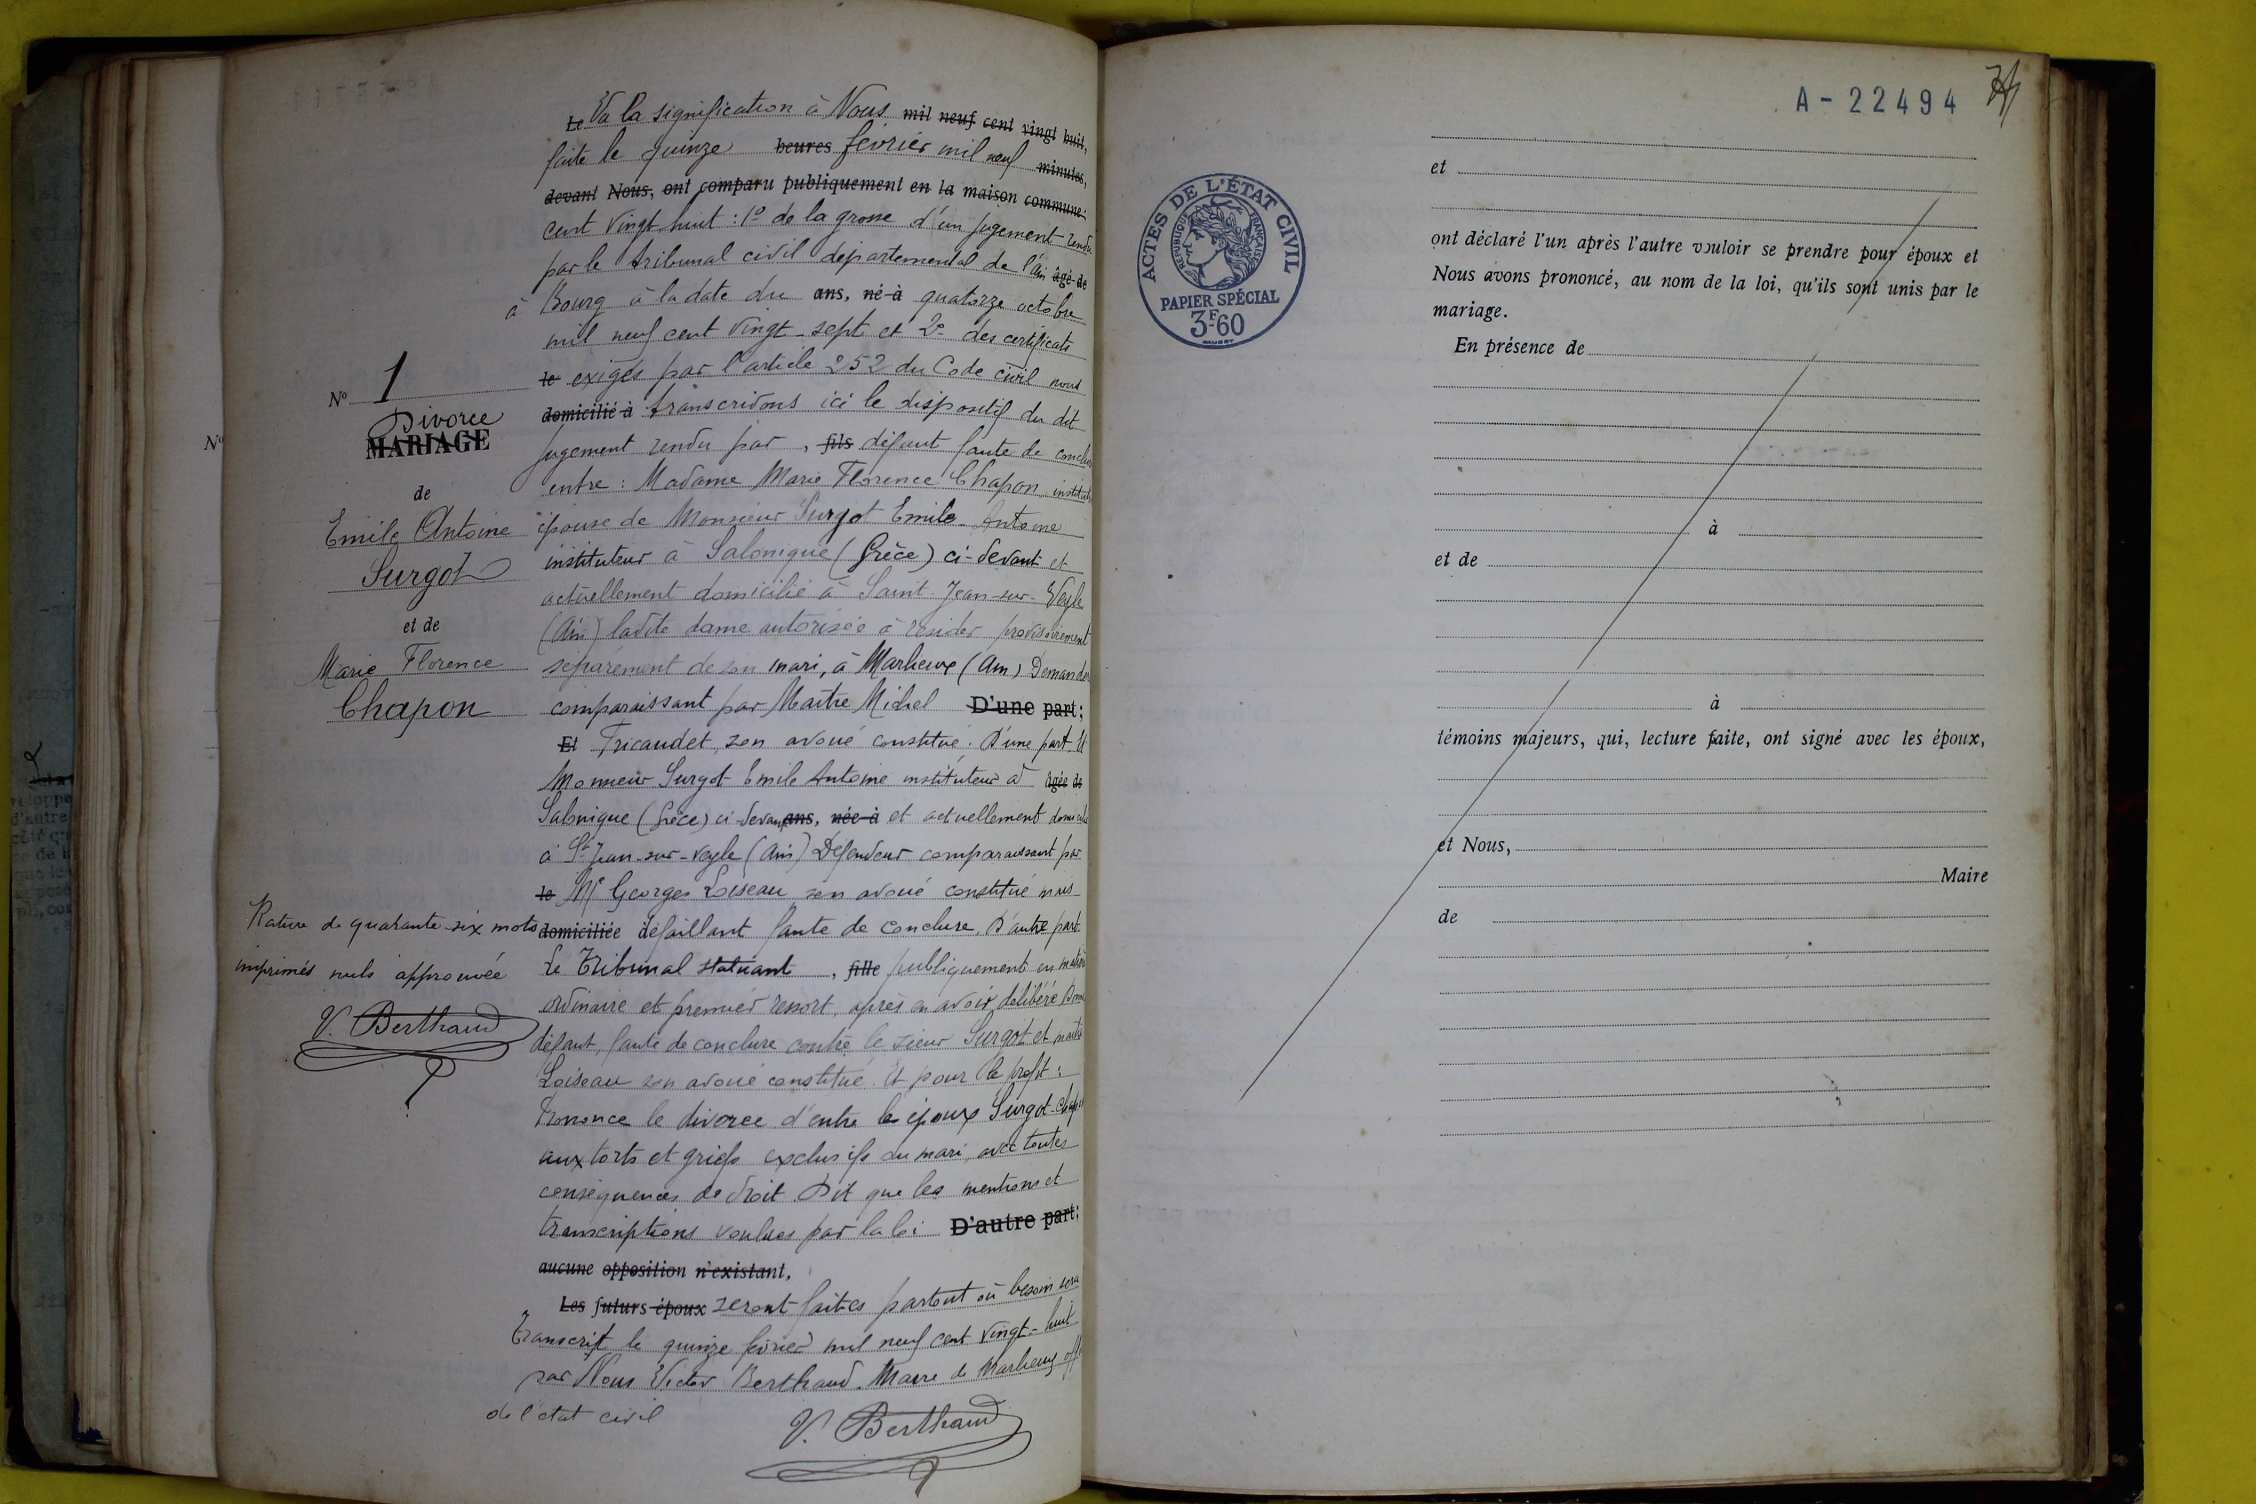 N° 1
Divorce
MARIAGE
de
Emile Antoine
Surgot
et de
Marie Florence
Chapon
Rature de quarante-six mots
imprimés nuls approuvée
V. Berthaud
Le Vu la signification à Nous mil neuf cent vingt huit,
faite le quinze heures février mil neuf minutes,
devant Nous, ont comparu publiquement en la maison commune:
cent vingt huit : 1° de la grosse d'un jugement rendu
par le tribunal civil départemental de l'Ain âgé de
à Bourg à la date du ans, né à quatorze octobre
mil neuf cent vingt-sept et 2° des certificats
le exigés par l'article 252 du Code civil nous
domicilié à transcrivons ici le dispositif du dit
jugement rendu par , fils défaut faute de conclure
entre : Madame Marie Florence Chapon
épouse de Monsieur Surgot Emile Antoine
instituteur à Salonique (Grèce) ci-devant et
actuellement domicilié à Saint-Jean-sur-Veyle
(Ain) ladite dame autorisée à résider provisoirement
séparément de son mari, à Marlieux (Ain) Demanderesse
comparaissant par Maître Michel D'une part;
Et Tricaudet, son avoué constitué. D'une part. Et
Monsieur Surgot Emile Antoine instituteur à âgée de
Salonique (Grèce) ci-devant ans, née à et actuellement domicilié
à St Jean-sur-Veyle (Ain) Défendeur comparaissant par
le Me Georges Loiseau son avoué constitué mais
domiciliée défaillant faute de conclure. D'autre part.
Le Tribunal statuant , fille publiquement en matière
ordinaire et premier ressort, après en avoir délibéré Donne
défaut, faute de conclure contre le sieur Surgot et maître
Loiseau son avoué constitué. Et pour le profit :
Prononce le divorce d'entre les époux Surgot-Chapon
aux torts et griefs exclusifs du mari, avec toutes
conséquences de droit. Dit que les mentions et
transcriptions voulues par la loi D'autre part;
aucune opposition n'existant,
Les futurs époux seront faites partout où besoin sera
Transcrit le quinze février mil neuf cent vingt-huit
par Nous Victor Berthaud. Maire de Marlieux off
de l'état civil
V. Berthaud
A-22494
ACTES DE L'ÉTAT CIVIL
RÉPUBLIQUE FRANÇAISE
PAPIER SPÉCIAL
3F-60
et
ont déclaré l'un après l'autre vouloir se prendre pour époux et
Nous avons prononcé, au nom de la loi, qu'ils sont unis par le
mariage.
En présence de
à
et de
à
témoins majeurs, qui, lecture faite, ont signé avec les époux,
et Nous,
Maire
de